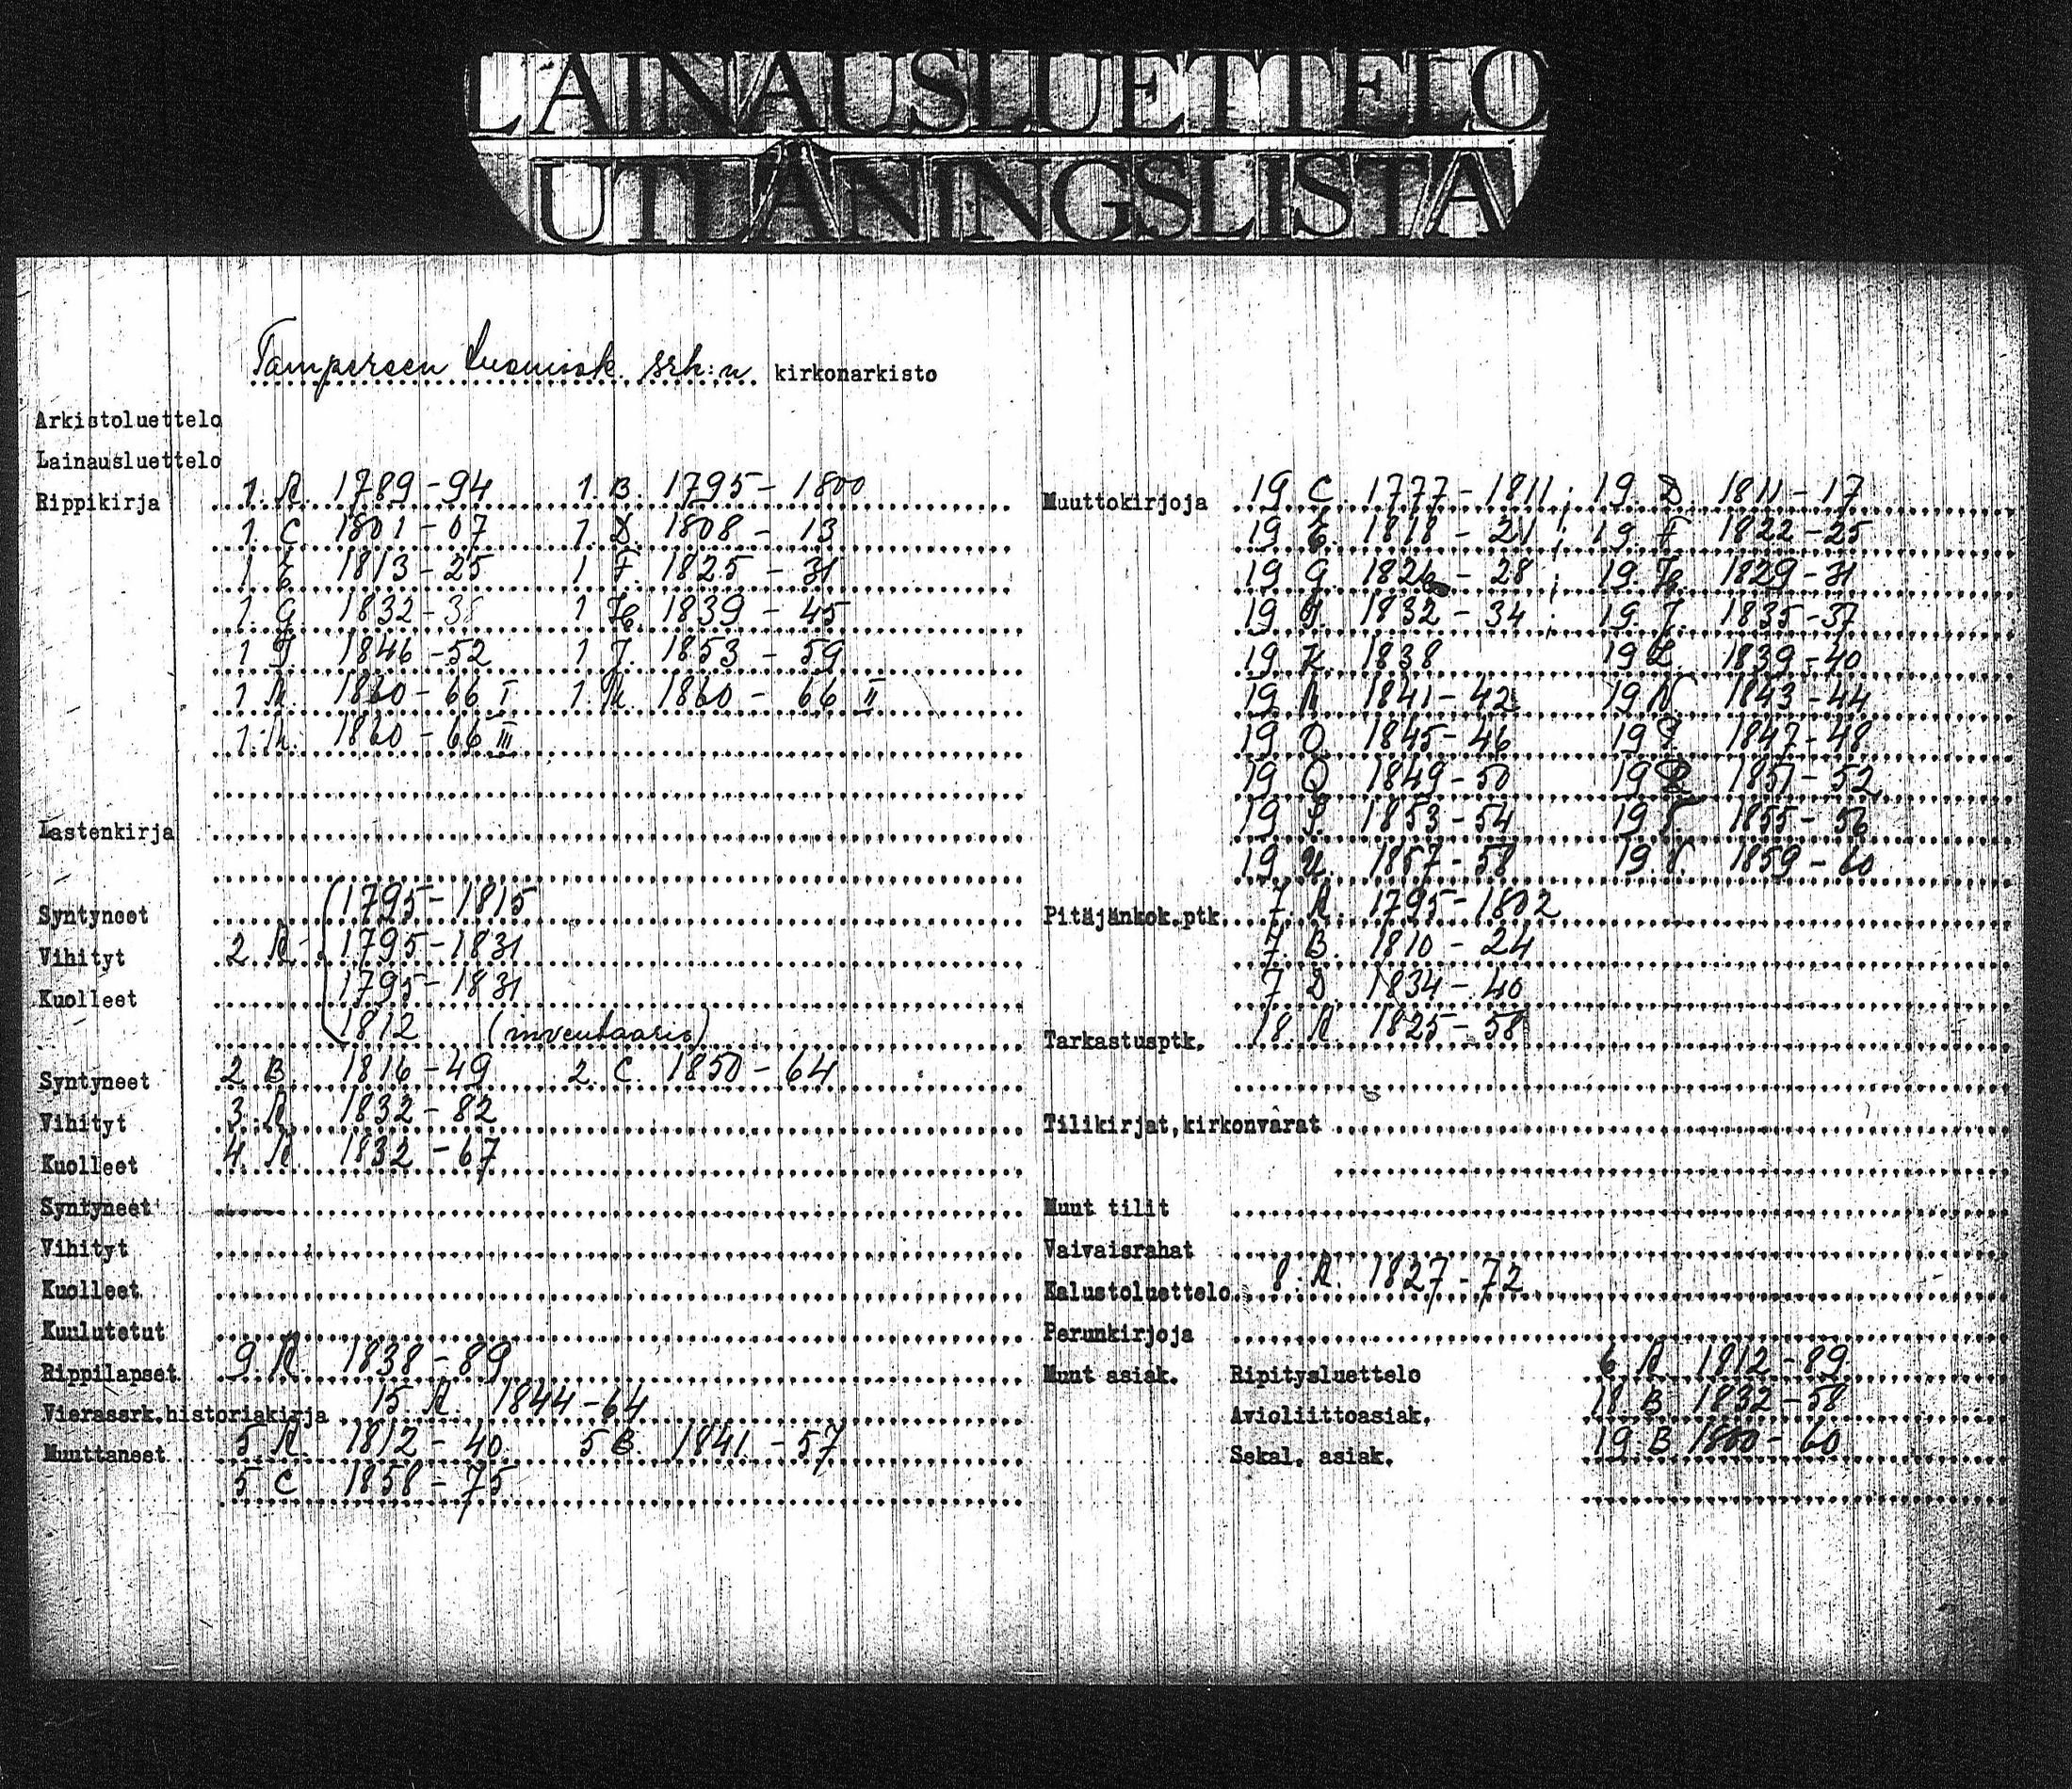 LAINAUSLUETTELO
UTLÅNINGSLISTA
Tampereen tuomiok. srk:n kirkonarkisto
Arkistoluettelo
Lainausluettelo
Rippikirja 1. A. 1789-94 1. B. 1795-1800
1. C 1801-07 1. D. 1808-13
1 E 1813-25 1 F. 1825-31
1. G. 1832-38 1 H. 1839-45
1 I. 1846-52 1 J. 1853-59
1 K. 1860-66 I 1. K. 1860-66 II
1. K. 1860-66 III
Lastenkirja
Syntyneet 1795-1815
Vihityt 2 A 1795-1831
Kuolleet 1795-1831
1812 (inventaario)
Syntyneet 2 B 1816-49 2. C. 1850-64
Vihityt 3. A. 1832-82
Kuolleet 4. A. 1832-67
Syntyneet
Vihityt
Kuolleet
Kuulutetut
Rippilapset 9. A. 1838-89
Vierassrk.historiakirja 15. A. 1844-64
Muuttaneet 5 A. 1812-40 5 B. 1841-57
5 C 1858-75
Muuttokirjoja 19 C. 1777-1811; 19. D. 1811-17
19 E. 1818-21; 19 F 1822-25
19 G. 1826-28; 19. H. 1829-31
19 I. 1832-34; 19. J. 1835-37
19 K. 1838 19 L. 1839-40
19 M 1841-42 19 N 1843-44
19 O. 1845-46 19 P. 1847-48
19 Q 1849-50 19 R 1851-52
19 S. 1853-54 19 T. 1855-56
19 U. 1857-58 19. V. 1859-60
Pitäjänkok.ptk. 7. A. 1795-1802
7. B. 1810-24
7 D. 1834-40
Tarkastusptk. 18. A 1825-58
Tilikirjat,kirkonvarat
Muut tilit
Vaivaisrahat
Kalustoluettelo 8. A. 1827-72
Perunkirjoja
Muut asiak. Ripitysluettelo 6 A 1812-89
Avioliittoasiak. 18. B. 1832-58
Sekal. asiak. 19. B 1800-60